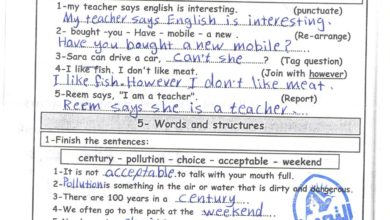 1-my teacher says english is interesting. (punctuate)
My teacher says English is interesting.
2- bought -you - Have - mobile - a new . (Re-arrange)
Have you bought a new mobile?
3-Sara can drive a car, can't she ......? (Tag question)
4-I like fish. I don't like meat. (Join with however)
I like fish. However I don't like meat.
5-Reem says, "I am a teacher". (Report)
Reem says she is a teacher.
5- Words and structures
1-Finish the sentences:
century - pollution - choice - acceptable - weekend
1-It is not acceptable to talk with your mouth full.
2-Pollution is something in the air or water that is dirty and dangerous.
3-There are 100 years in a century....
4-We often go to the park at the weekend....